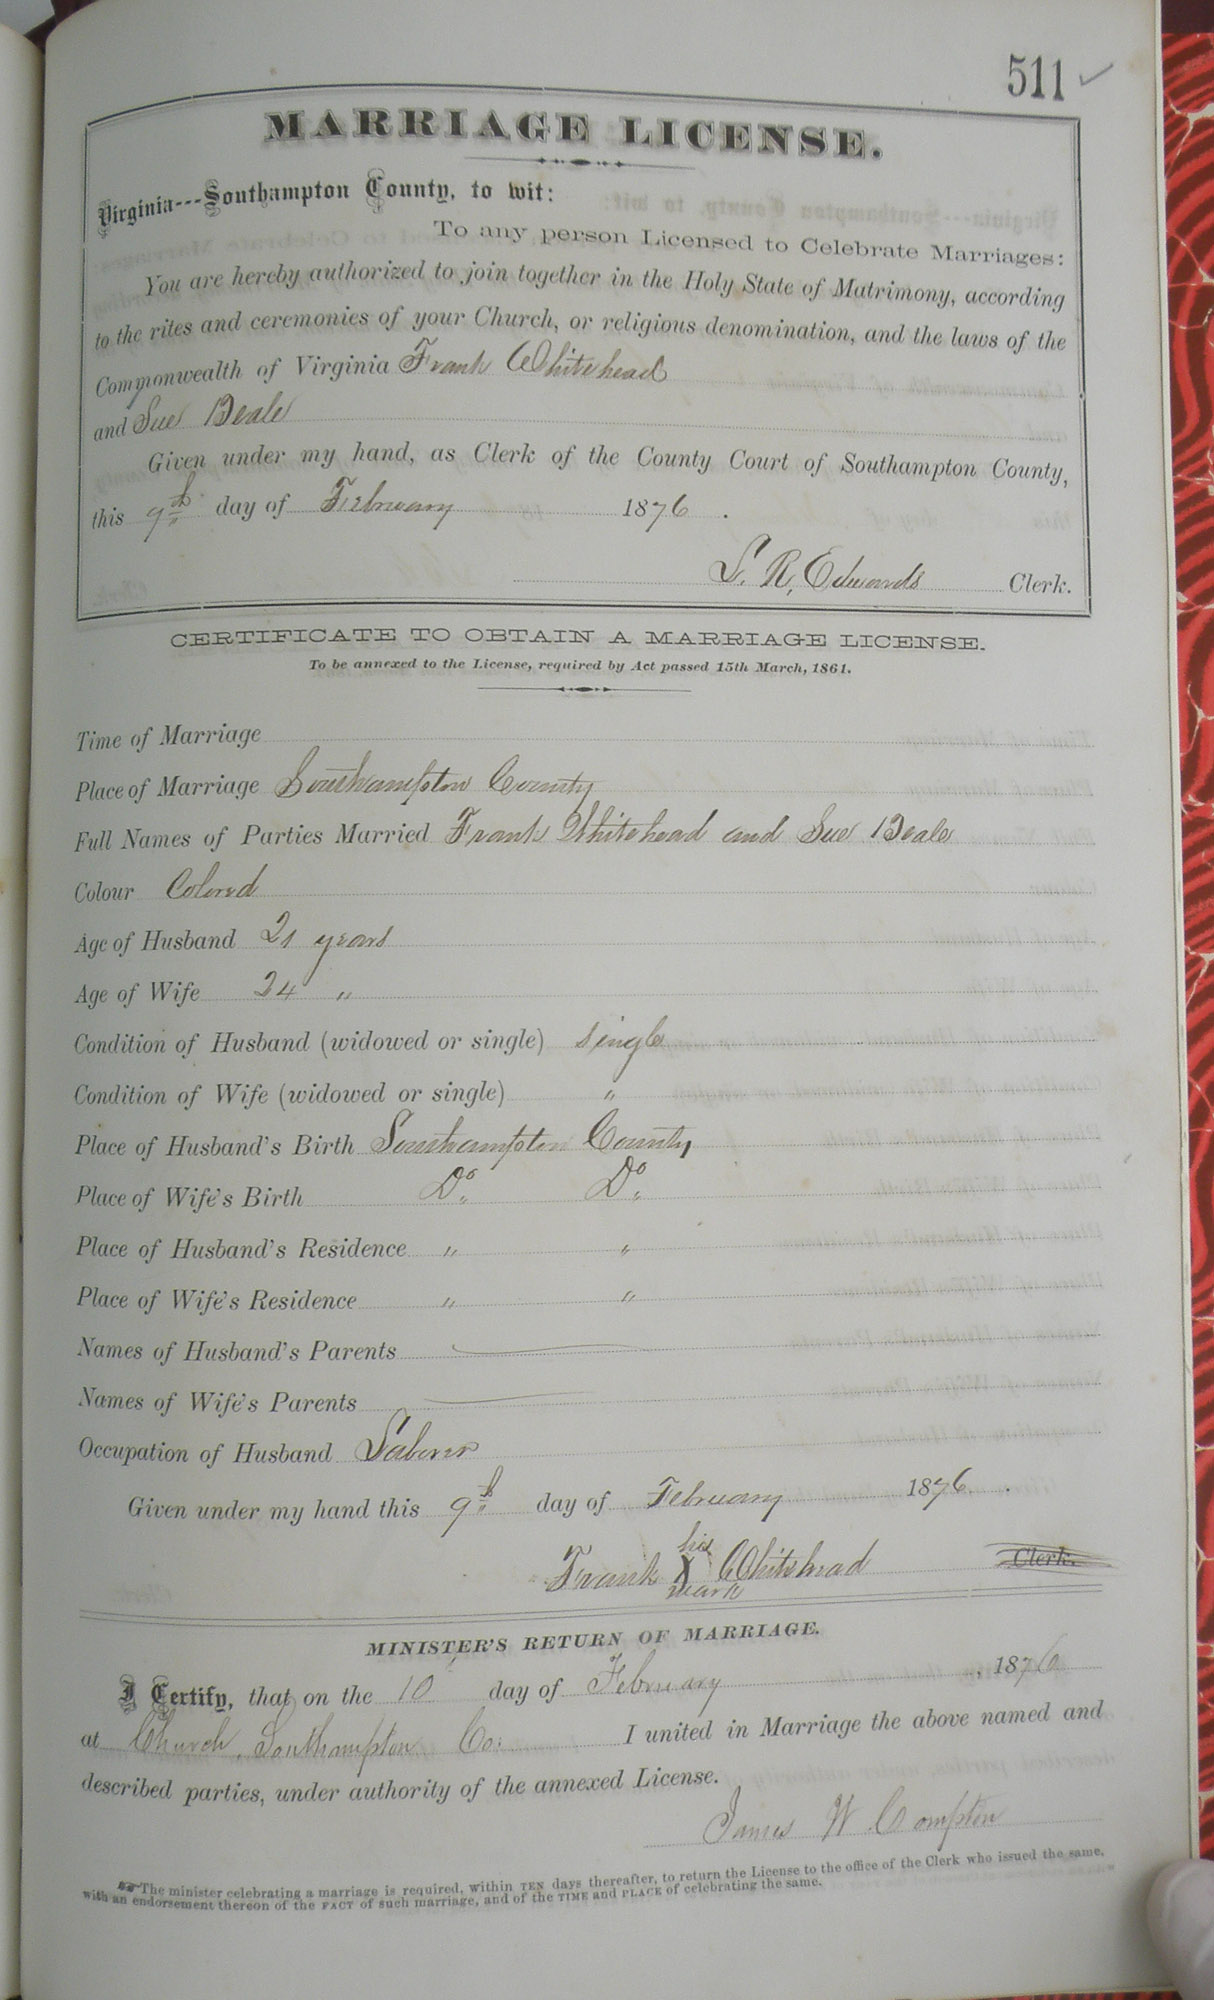 511 ✓
MARRIAGE LICENSE.
Virginia---Southampton County, to wit:
To any person Licensed to Celebrate Marriages:
You are hereby authorized to join together in the Holy State of Matrimony, according
to the rites and ceremonies of your Church, or religious denomination, and the laws of the
Commonwealth of Virginia Frank Whitehead
and Sue Beale
Given under my hand, as Clerk of the County Court of Southampton County,
this 9th day of February 1876.
L. R. Edwards Clerk.
CERTIFICATE TO OBTAIN A MARRIAGE LICENSE.
To be annexed to the License, required by Act passed 15th March, 1861.
Time of Marriage
Place of Marriage Southampton County
Full Names of Parties Married Frank Whitehead and Sue Beale
Colour Colored
Age of Husband 21 years
Age of Wife 24 "
Condition of Husband (widowed or single) single
Condition of Wife (widowed or single) "
Place of Husband's Birth Southampton County
Place of Wife's Birth Do Do
Place of Husband's Residence " "
Place of Wife's Residence " "
Names of Husband's Parents
Names of Wife's Parents
Occupation of Husband Laborer
Given under my hand this 9th day of February 1876.
Frank his X mark Whitehead Clerk.
MINISTER'S RETURN OF MARRIAGE.
I Certify, that on the 10 day of February, 1876
at Church, Southampton Co: I united in Marriage the above named and
described parties, under authority of the annexed License.
James W. Compton
☞The minister celebrating a marriage is required, within TEN days thereafter, to return the License to the office of the Clerk who issued the same,
with an endorsement thereon of the FACT of such marriage, and of the TIME and PLACE of celebrating the same.